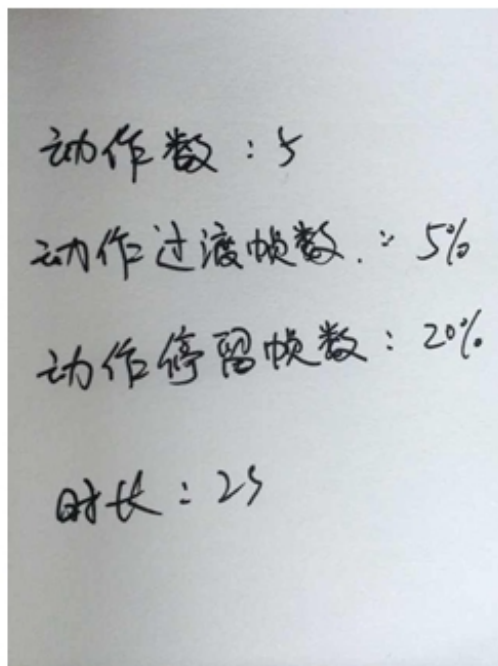 动作数：5
动作过渡帧数：5%
动作停留帧数：20%
时长：2s